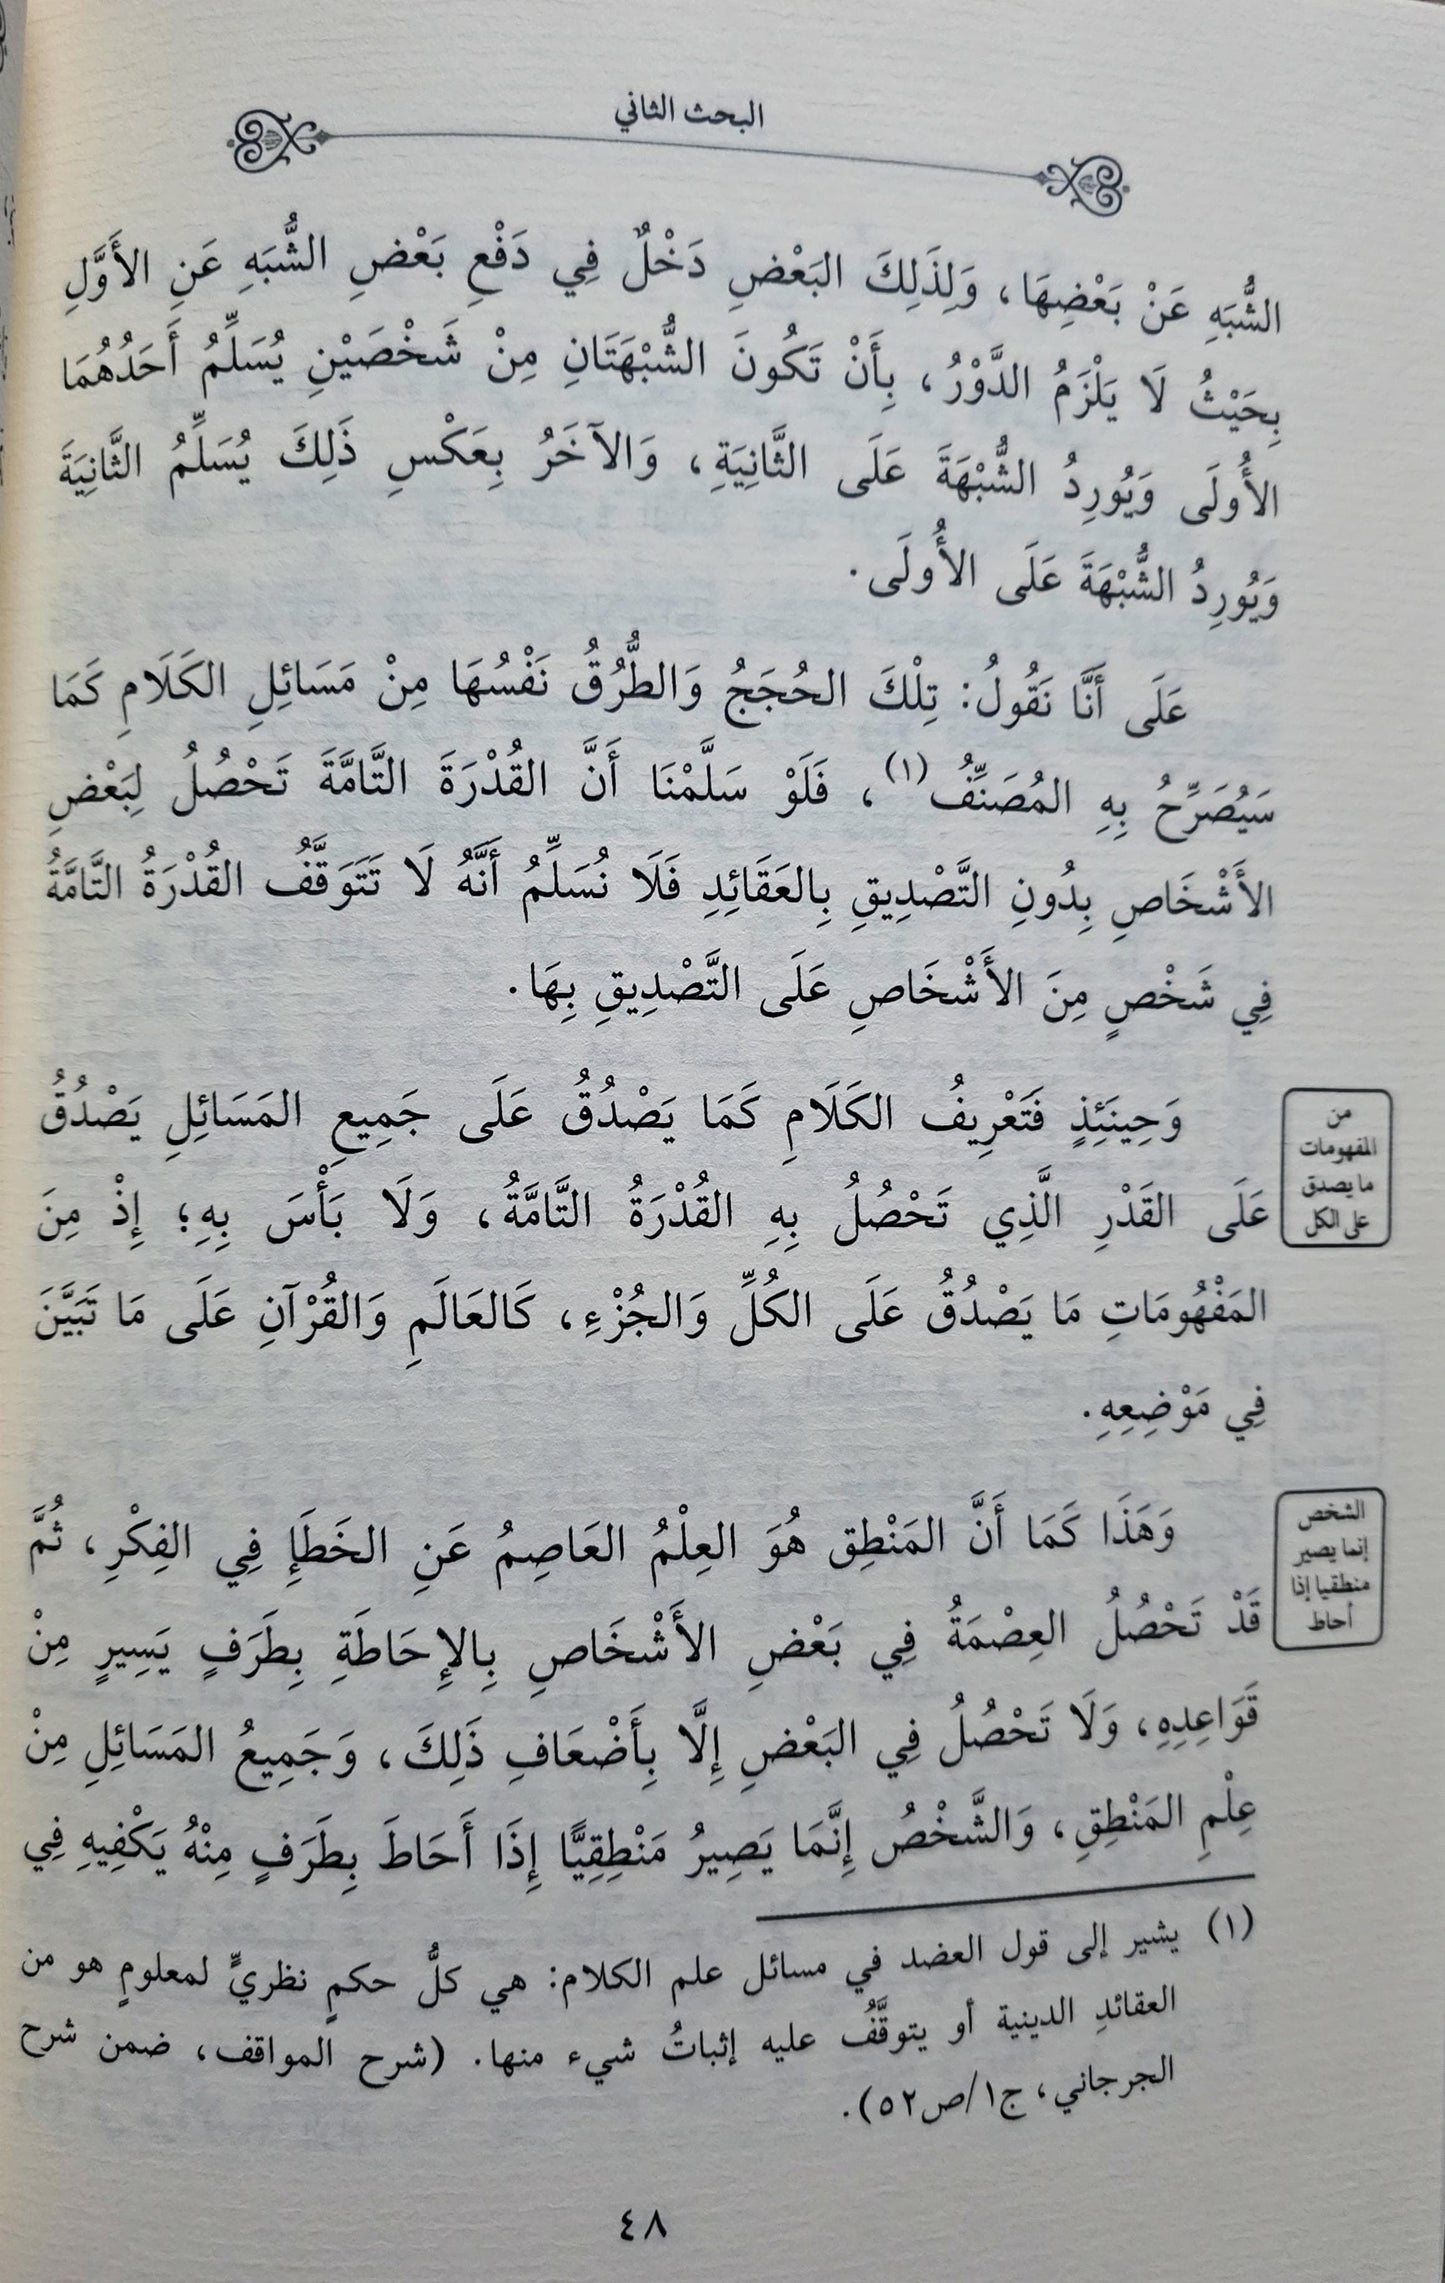 البحث الثاني
الشُّبَهِ عَنْ بَعْضِهَا، وَلِذَلِكَ البَعْضِ دَخْلٌ فِي دَفْعِ بَعْضِ الشُّبَهِ عَنِ الأَوَّلِ
بِحَيْثُ لَا يَلْزَمُ الدَّوْرُ، بِأَنْ تَكُونَ الشُّبْهَتَانِ مِنْ شَخْصَيْنِ يُسَلِّمُ أَحَدُهُمَا
الأُولَى وَيُورِدُ الشُّبْهَةَ عَلَى الثَّانِيَةِ، وَالآخَرُ بِعَكْسِ ذَلِكَ يُسَلِّمُ الثَّانِيَةَ
وَيُورِدُ الشُّبْهَةَ عَلَى الأُولَى.
عَلَى أَنَّا نَقُولُ: تِلْكَ الحُجَجُ وَالطُّرُقُ نَفْسُهَا مِنْ مَسَائِلِ الكَلَامِ كَمَا
سَيُصَرِّحُ بِهِ المُصَنِّفُ(١)، فَلَوْ سَلَّمْنَا أَنَّ القُدْرَةَ التَّامَّةَ تَحْصُلُ لِبَعْضِ
الأَشْخَاصِ بِدُونِ التَّصْدِيقِ بِالعَقَائِدِ فَلَا نُسَلِّمُ أَنَّهُ لَا تَتَوَقَّفُ القُدْرَةُ التَّامَّةُ
فِي شَخْصٍ مِنَ الأَشْخَاصِ عَلَى التَّصْدِيقِ بِهَا.
وَحِينَئِذٍ فَتَعْرِيفُ الكَلَامِ كَمَا يَصْدُقُ عَلَى جَمِيعِ المَسَائِلِ يَصْدُقُ
عَلَى القَدْرِ الَّذِي تَحْصُلُ بِهِ القُدْرَةُ التَّامَّةُ، وَلَا بَأْسَ بِهِ؛ إِذْ مِنَ
المَفْهُومَاتِ مَا يَصْدُقُ عَلَى الكُلِّ وَالجُزْءِ، كَالعَالَمِ وَالقُرْآنِ عَلَى مَا تَبَيَّنَ
فِي مَوْضِعِهِ.
من
المفهومات
ما يصدق
على الكل
وَهَذَا كَمَا أَنَّ المَنْطِق هُوَ العِلْمُ العَاصِمُ عَنِ الخَطَإِ فِي الفِكْرِ، ثُمَّ
قَدْ تَحْصُلُ العِصْمَةُ فِي بَعْضِ الأَشْخَاصِ بِالإِحَاطَةِ بِطَرَفٍ يَسِيرٍ مِنْ
قَوَاعِدِهِ، وَلَا تَحْصُلُ فِي البَعْضِ إِلَّا بِأَضْعَافِ ذَلِكَ، وَجَمِيعُ المَسَائِلِ مِنْ
عِلْمِ المَنْطِقِ، وَالشَّخْصُ إِنَّمَا يَصِيرُ مَنْطِقِيًّا إِذَا أَحَاطَ بِطَرَفٍ مِنْهُ يَكْفِيهِ فِي
الشخص
إنما يصير
منطقيا إذا
أحاط
(١) يشير إلى قول العضد في مسائل علم الكلام: هي كلُّ حكمٍ نظريٍّ لمعلومٍ هو من
العقائدِ الدينية أو يتوقَّفُ عليه إثباتُ شيء منها. (شرح المواقف، ضمن شرح
الجرجاني، ج١/ص٥٢).
٤٨